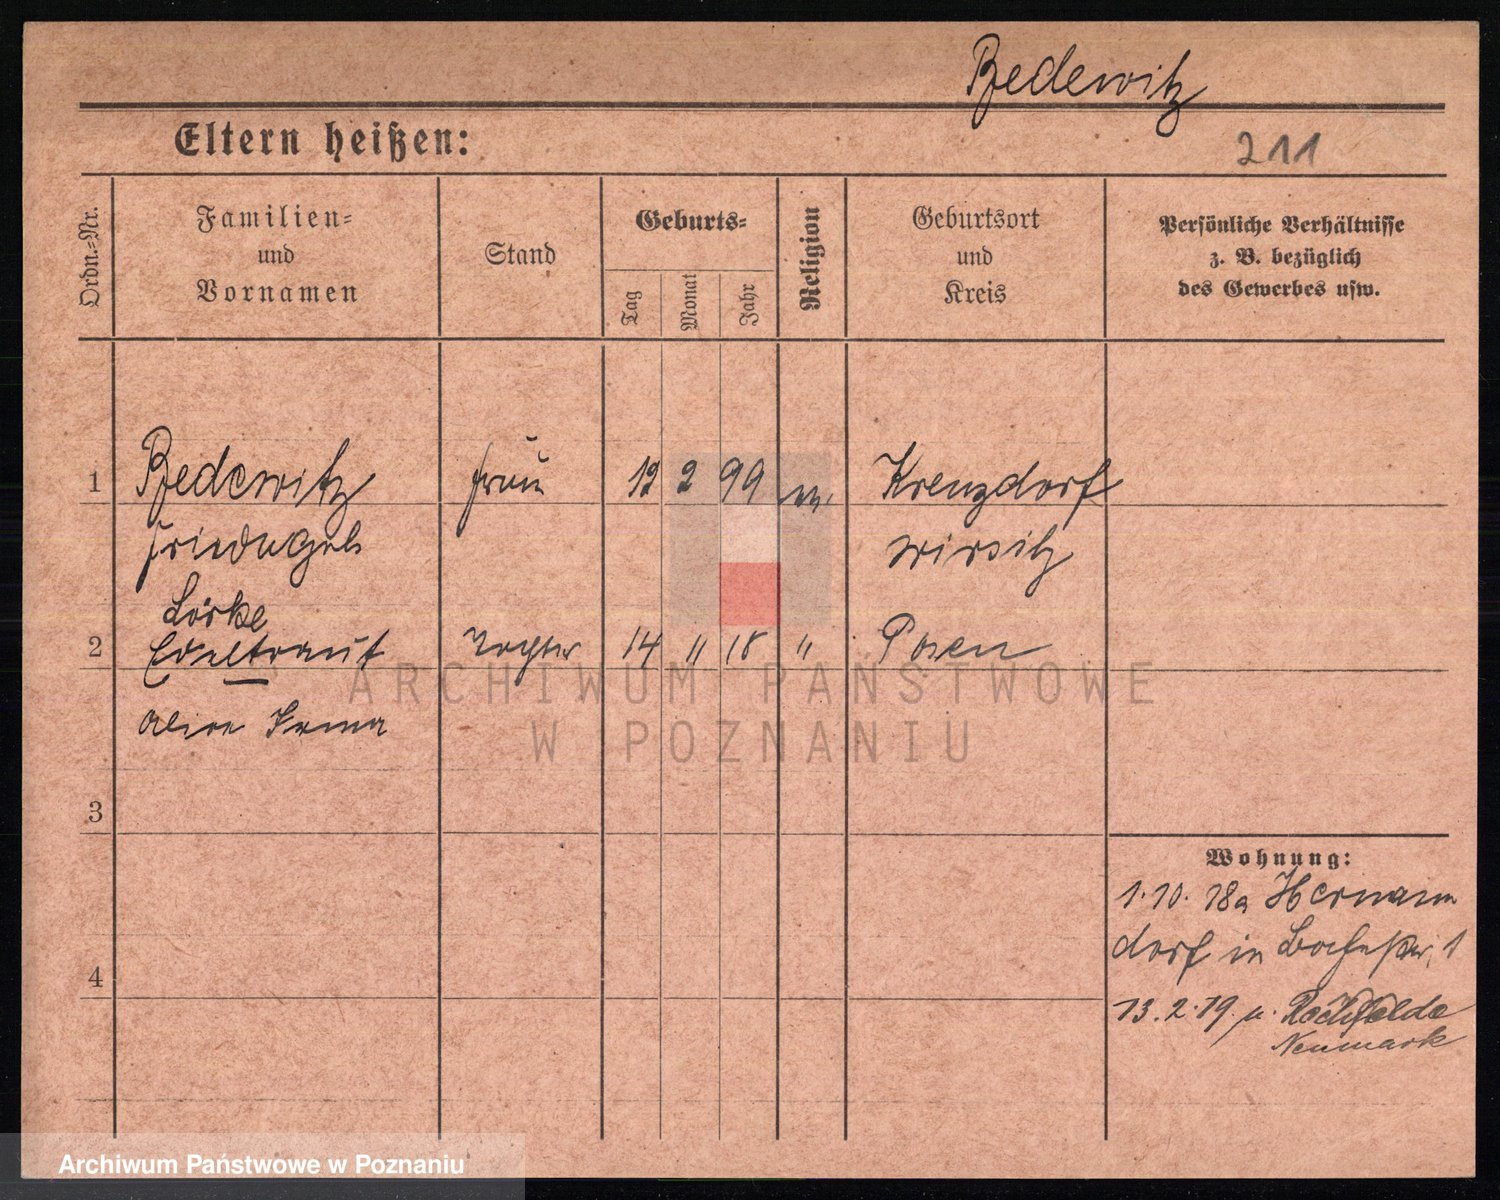 Bedewitz
Eltern heißen:
211
Ordn.=Nr.
Familien=
und
Vornamen
Stand
Geburts=
Tag
Monat
Jahr
Religion
Geburtsort
und
Kreis
Persönliche Verhältnisse
z. B. bezüglich
des Gewerbes usw.
1 Bedewitz Frau 12 2 99 Krenzdorf
Wirsitz
2 Edeltraut Tochter 14 " 18 " Posen
Irma
3
4
Wohnung:
1.10.18 a Hermann
dorf in 1
13.2.19. n.
Neumark
ARCHIWUM PAŃSTWOWE
W POZNANIU
Archiwum Państwowe w Poznaniu